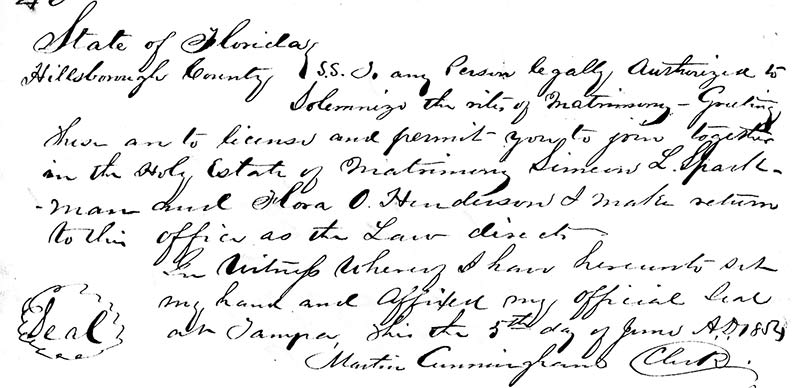 State of Florida
Hillsborough County } S.S. To any Person legally Authorized to
Solemnize the rites of Matrimony – Greeting
These are to license and permit you to join together
in the Holy Estate of Matrimony Simeon L. Spark-
-man and Flora O. Henderson & make return
to this office as the Law directs
In Witness Whereof I have hereunto set
my hand and Affixed my official Seal
at Tampa, this the 5th day of June A.D.
Seal
Martin Cunningham Clerk.